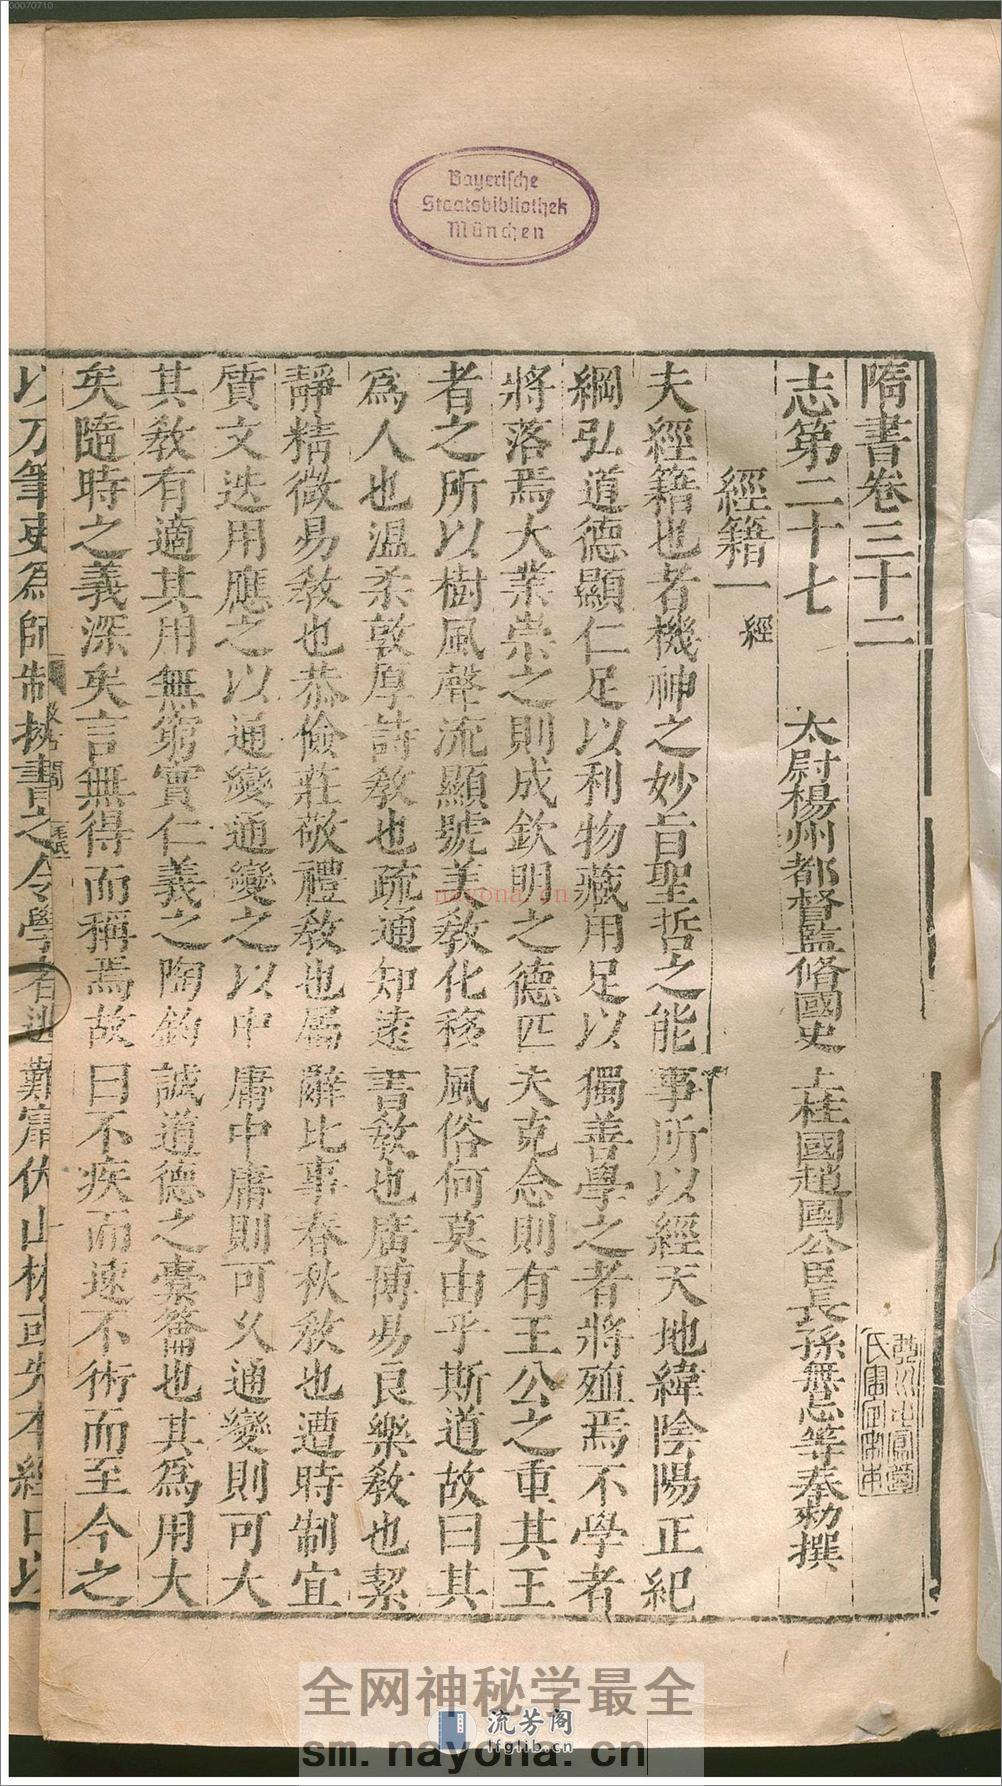 00070710
Bayerische
Staatsbibliothek
München
隋書卷三十二
志第二十七 太尉楊州都督監脩國史上柱國趙國公臣長孫無忌等奉勑撰
經籍一 經
夫經籍也者機神之妙旨聖哲之能事所以經天地緯陰陽正紀
綱弘道德顯仁足以利物藏用足以獨善學之者將殖焉不學者
將落焉大業崇之則成欽明之德匹夫克念則有王公之重其王
者之所以樹風聲流顯號美敎化移風俗何莫由乎斯道故曰其
爲人也溫柔敦厚詩敎也疏通知遠書敎也廣博易良樂敎也絜
靜精微易敎也恭儉莊敬禮敎也屬辭比事春秋敎也遭時制宜
質文迭用應之以通變通變之以中庸中庸則可久通變則可大
其敎有適其用無窮實仁義之陶鈞誠道德之橐籥也其爲用大
矣隨時之義深矣言無得而稱焉故曰不疾而速不術而至今之
以刀筆吏爲師制挾書之令學者逃難竄伏山林或失本經口以
nayona.cn
全网神秘学最全
流芳阁
lfglib.cn
sm.nayona.cn